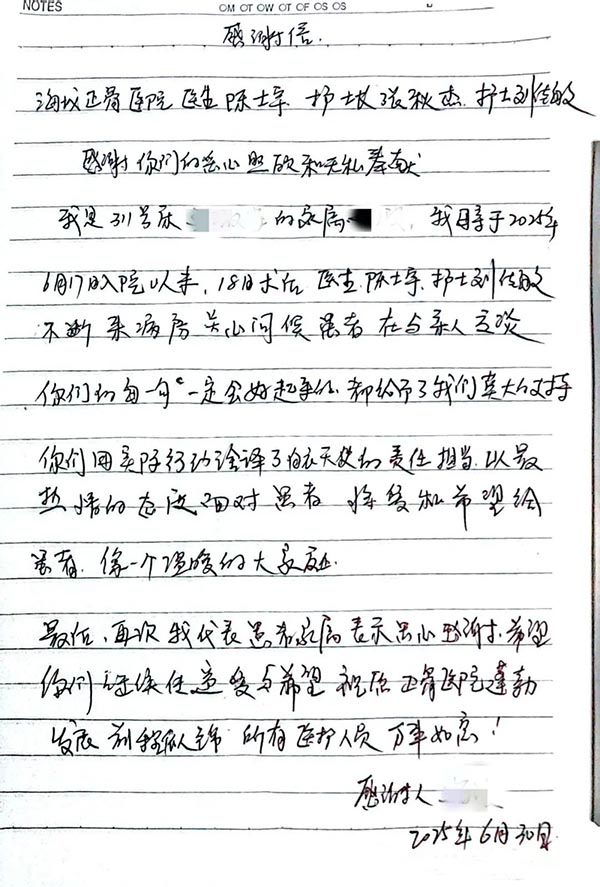 NOTES
MO TU WE TH FR SA SU
感谢信.
海城正骨医院 医生 陈士宇. 护士 张秋杰. 护士刘佳敏
感谢你们的悉心照顾和无私奉献
我是311号床 的家属 我母亲于2025年
6月17日入院以来,18日术后 医生 陈士宇. 护士刘佳敏
不断来病房关心问候患者 在与亲人交谈
你们的每一句“一定会好起来的.都给予了我们莫大的支持
你们用实际行动诠译了白衣天使的责任担当.以最
热情的态度面对患者 将爱和希望给
患者. 像一个温暖的大家庭.
最后,再次我代表患者家属表示忠心感谢.希望
你们继续传递爱与希望 祝愿正骨医院蓬勃
发展 前程似锦 所有医护人员 万事如意!
感谢人
2025年6月30日